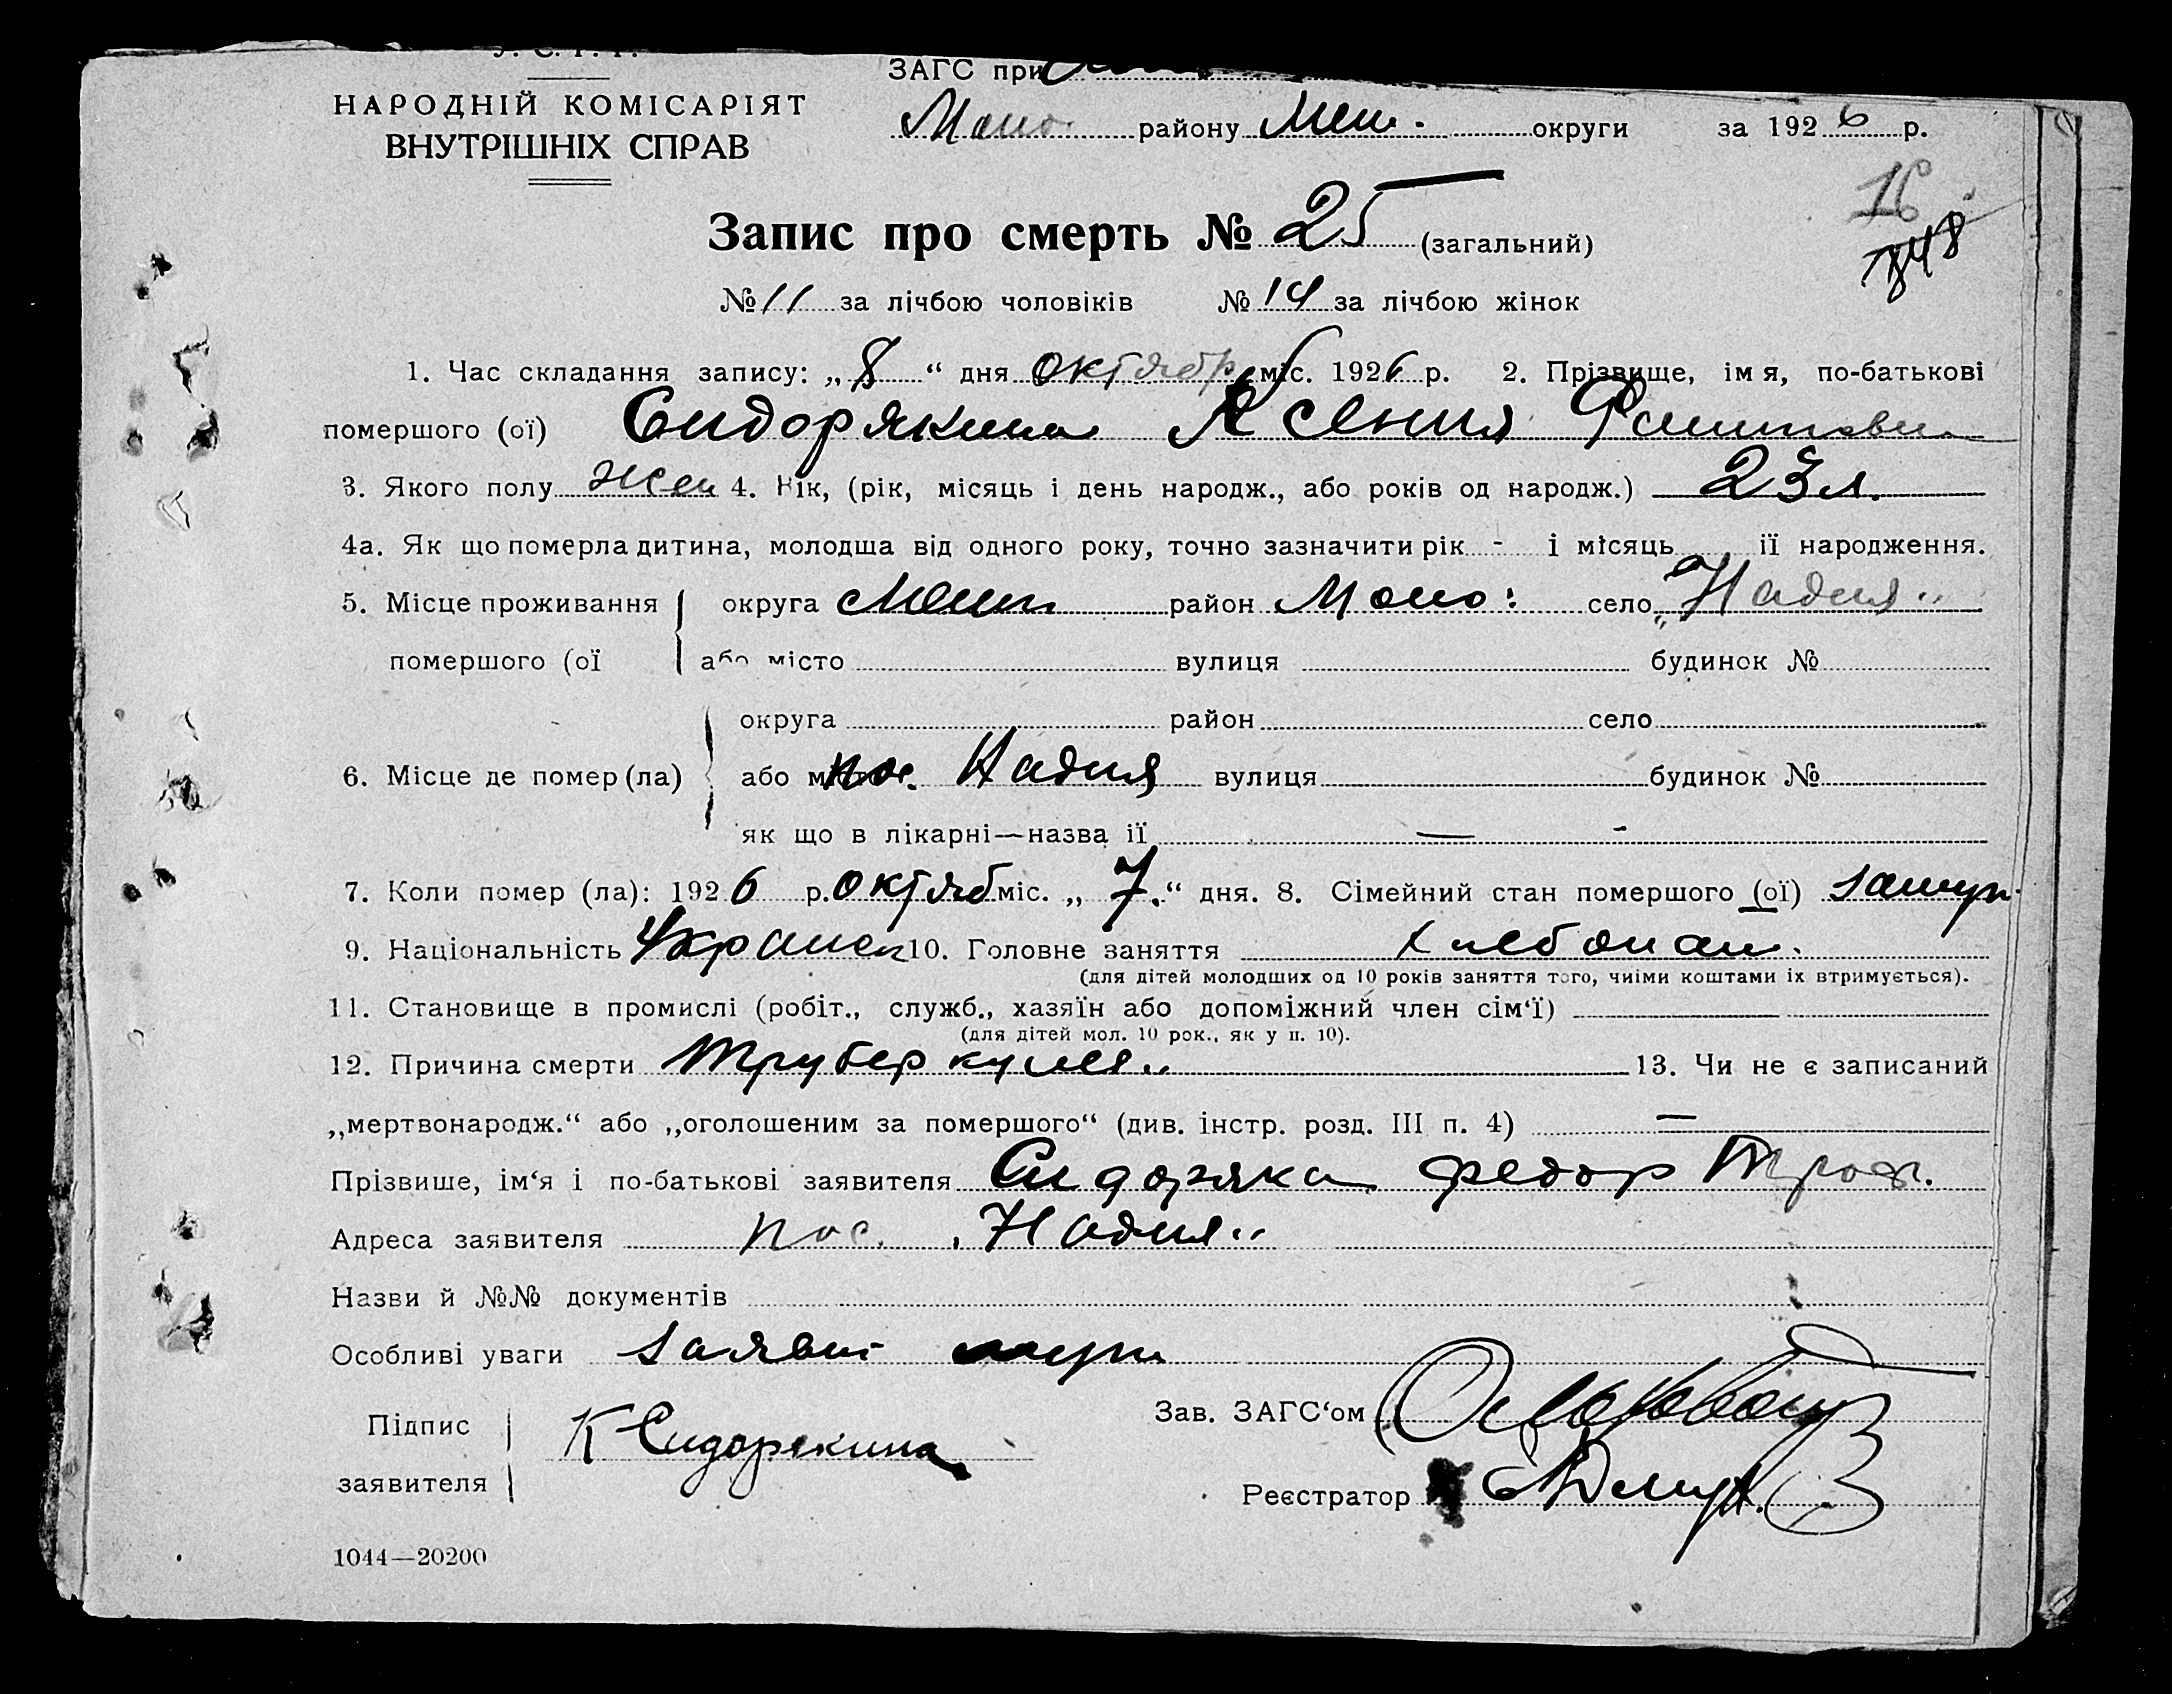 У. С. Р. Р.
НАРОДНІЙ КОМІСАРІЯТ
ВНУТРІШНІХ СПРАВ
ЗАГС при
району Мел. округи за 1926 р.
16
Запис про смерть № 25 (загальний)
№ 11 за лічбою чоловіків № 14 за лічбою жінок
1. Час складання запису: „8“ дня октябр міс. 1926 р. 2. Прізвище, імя, по-батькові
помершого (ої) Сидорякина Ксения
3. Якого полу жен 4. Вік, (рік, місяць і день народж., або років од народж.) 23 л.
4а. Як що померла дитина, молодша від одного року, точно зазначити рік - і місяць її народження.
5. Місце проживання округа Мелит район село „Надия“
помершого (ої або місто вулиця будинок №
округа район село
6. Місце де помер (ла) або місто пос. Надия вулиця будинок №
як що в лікарні—назва її — -
7. Коли помер (ла): 1926 р. октяб міс. „7.“ дня. 8. Сімейний стан помершого (ої) замуж
9. Національність Украинск 10. Головне заняття хлебопаш.
(для дітей молодших од 10 років заняття того, чиіми коштами іх втримується).
11. Становище в промислі (робіт., служб., хазяїн або допоміжний член сім‘ї)
(для дітей мол. 10 рок., як у п. 10).
12. Причина смерти 13. Чи не є записаний
„мертвонародж.“ або „оголошеним за помершого“ (див. інстр. розд. III п. 4) —
Прізвише, ім‘я і по-батькові заявителя Сидоряка Федор Троф.
Адреса заявителя пос. „Надия“
Назви й №№ документів
Особливі уваги заявил муж
Підпис
заявителя К Сидорякина
Зав. ЗАГС‘ом
Реєстратор
1044—20200